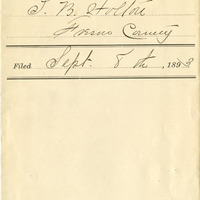 T. B. Holton
Fresno County
Filed Sept. 8th, 1893